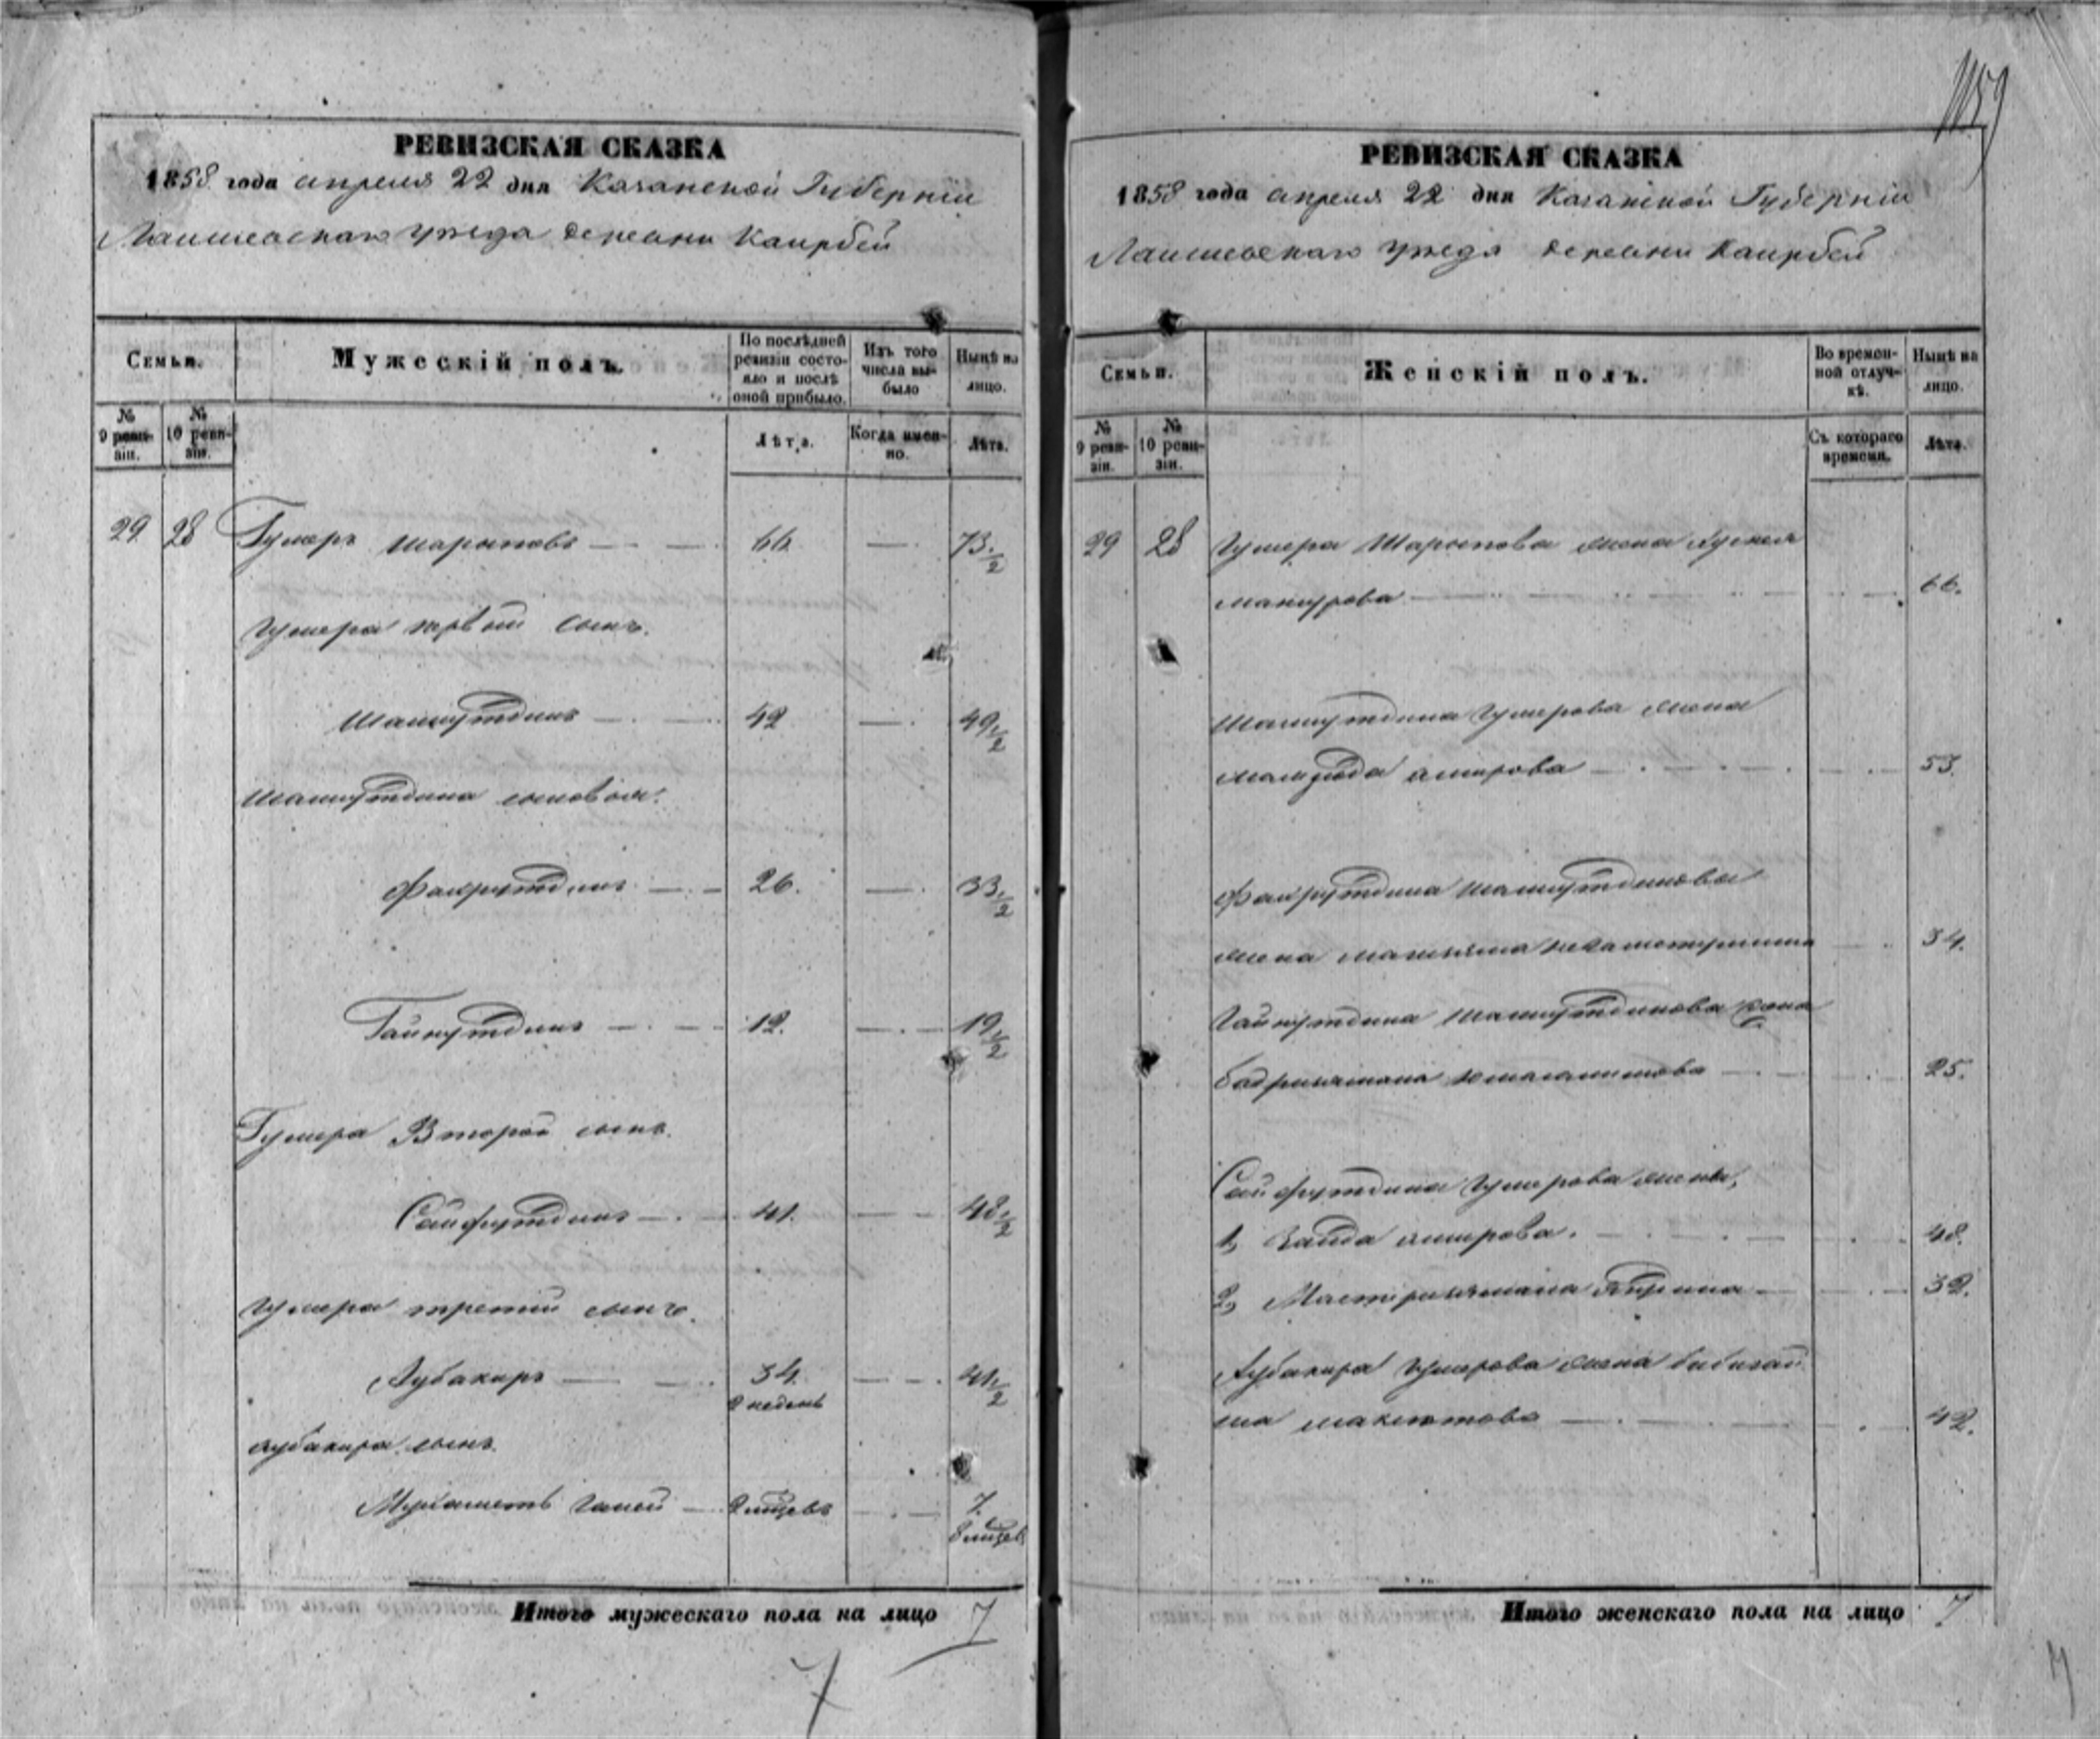 1159
РЕВИЗСКАЯ СКАЗКА
1858 года апреля 22 дня Казанской Губерніи
Лаишевскаго уезда деревни Каирбей
Семьи.
Мужескій полъ.
По послѣдней ревизіи состояло и послѣ оной прибыло.
Изъ того числа выбыло
Нынѣ на лицо.
№ 9 ревизіи.
№ 10 ревизіи.
Лѣта.
Когда именно.
Лѣта.
29 28 Гумеръ Шариповъ — 66. — 73 1/2
Гумера первый сынъ.
Шамсутдинъ — 42 — 49 1/2
Шамсутдина сыновья:
Фахрутдинъ — 26. — 33 1/2
Гайнутдинъ — 12. — 19 1/2
Гумера Второй сынъ.
Сайфутдинъ — 41. — 48 1/2
Гумера третій сынъ.
Аубакиръ — 34. — 41 1/2
недель
Аубакира сынъ.
Мухаметь Галей — месцевъ — 7.
8 месцев
Итого мужескаго пола на лицо 7
7
РЕВИЗСКАЯ СКАЗКА
1858 года апреля 22 дня Казанской Губерніи
Лаишевскаго уезда деревни Каирбей
Семьи.
Женскій полъ.
Во временной отлучкѣ.
Нынѣ на лицо.
№ 9 ревизіи.
№ 10 ревизіи.
Съ котораго времени.
Лѣта.
29 28 Гумера Шарипова жена
— 66.
Шамсутдина Гумерова жена
амирова — 53.
Фахрутдина Шамсутдинова
жена — 34.
Гайнутдина Шамсутдинова жена
— 25.
Сайфутдина Гумерова жены,
1, Заида амирова. — 48.
2, — 32.
Аубакира Гумерова жена бибигай
ша — 42.
Итого женскаго пола на лицо 7